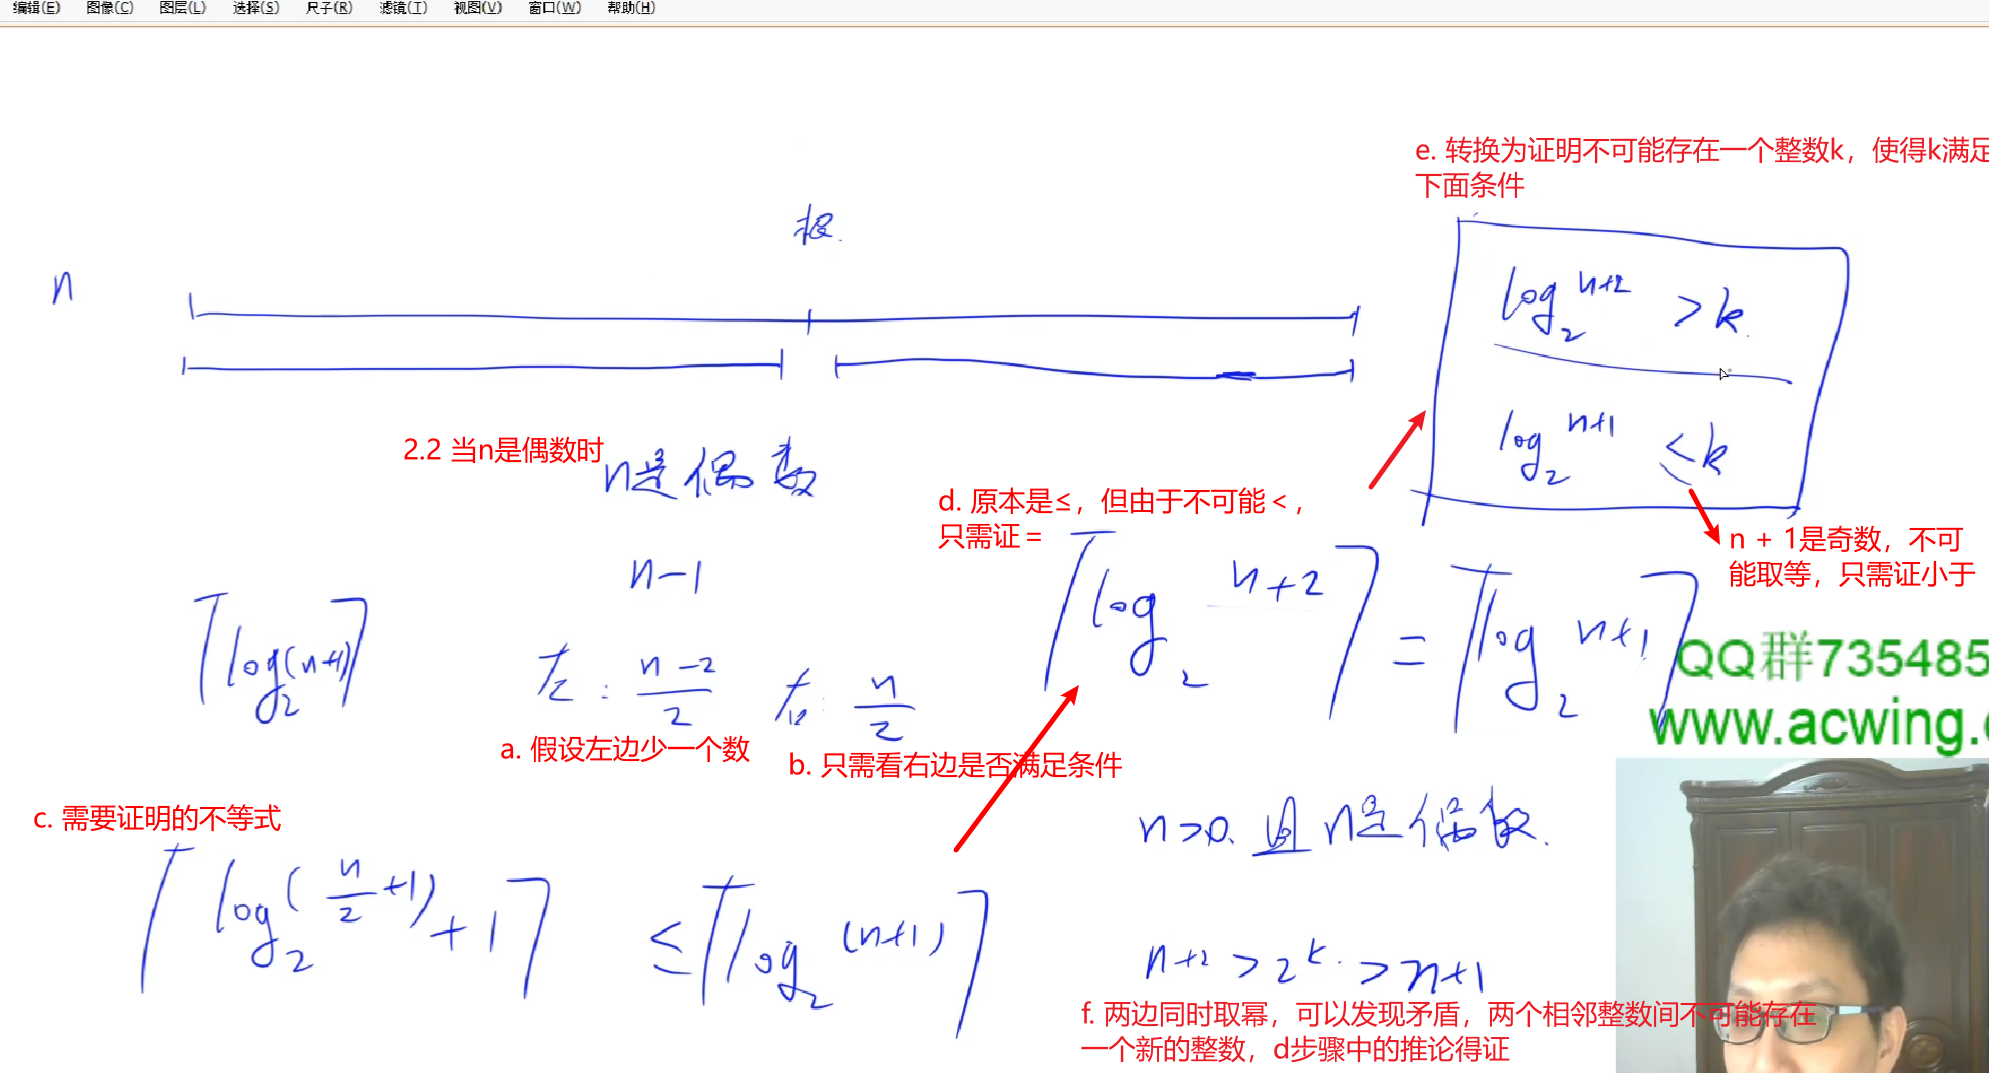 编辑(E) 图像(C) 图层(L) 选择(S) 尺子(R) 滤镜(T) 视图(V) 窗口(W) 帮助(H)
e. 转换为证明不可能存在一个整数k，使得k满足
下面条件
n
log₂ n+2 > k
log₂ n+1 ≤ k
2.2 当n是偶数时
n是偶数
d. 原本是≤，但由于不可能＜，
只需证＝
n + 1是奇数，不可
能取等，只需证小于
n-1
⌈log₂(n+1)⌉
左: n-2/2 右: n/2
⌈log₂ n+2⌉ = ⌈log₂ n+1⌉
QQ群735485
www.acwing.
a. 假设左边少一个数
b. 只需看右边是否满足条件
c. 需要证明的不等式
n>0 且 n是偶数.
⌈log₂(n/2+1)+1⌉ ≤ ⌈log₂(n+1)⌉
n+2 > 2ᵏ > n+1
f. 两边同时取幂，可以发现矛盾，两个相邻整数间不可能存在
一个新的整数，d步骤中的推论得证